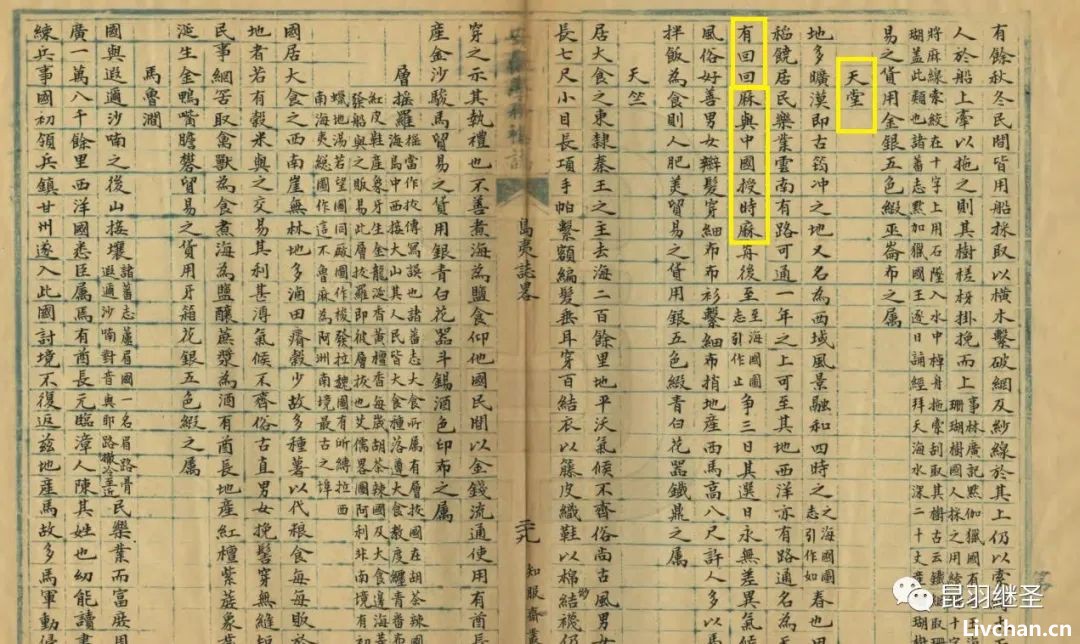 有餘秋冬民間皆用船採取以橫木繫破網及紗線於其上仍以索
人於船上牽以拖之則其樹槎枒掛挽而上
事林廣記默伽獵國有
珊瑚樹國人採之用
將麻線索絞在十字上用石墜入水中棹舟拖索刮取其樹古云鐵
瑚蓋此類也諸蕃志默加獵國王逐日誦經拜天海水深二十丈產
易之貨用金銀五色緞巫崙布之属
天堂
地多曠漠即古筠冲之地又名為西域風景融和四時之海國圖志引作如春也田
稻饒居民樂業雲南有路可通一年之上可至其地西洋亦有路通名為天
有回回厤與中國授時厤再後至至海國圖志引作止争三日其選日永無差異氣候
風俗好善男女辮髮穿細布布衫繫細布捎地產西馬高八尺許人多以
拌飯為食則人肥美貿易之貨用銀五色緞青白花器鐵鼎之属
天竺
居大食之東隸秦王之主去海二百餘里地平沃氣候不齊俗尚古風男女
長七尺小目長項手帕繫額編髮垂耳穿百結衣以籐皮織鞋以棉結襪仍
島夷誌畧
二九
知服齋
穿之示其執禮也不善煮海為鹽食仰他國民間以金錢流通使用有酋長
產金沙駿馬貿易之貨用銀青白花器斗錫酒色印布之属
層揺羅
國居大食之西南崖無林地多滷田瘠穀少故多種薯以代粮食每每販於
地者若有穀米與之交易其利甚溥氣候不齊俗古直男女挽髻穿無縫短
民事網罟取禽獸為食煮海為鹽釀蔗漿為酒有酋長地產紅檀紫蔗象
涎生金鴨嘴膽礬貿易之貨用牙箱花銀五色緞之属
馬魯澗
國與遐邇沙喃之後山接壤
民樂業而富庶周
廣一萬八千餘里西洋國悉臣属焉有酋長元臨漳人陳其姓也幼能讀書
練兵事國初領兵鎮甘州遂入此國討境不復返茲地產馬故多馬軍動侵
昆羽继圣
Livchan.cn